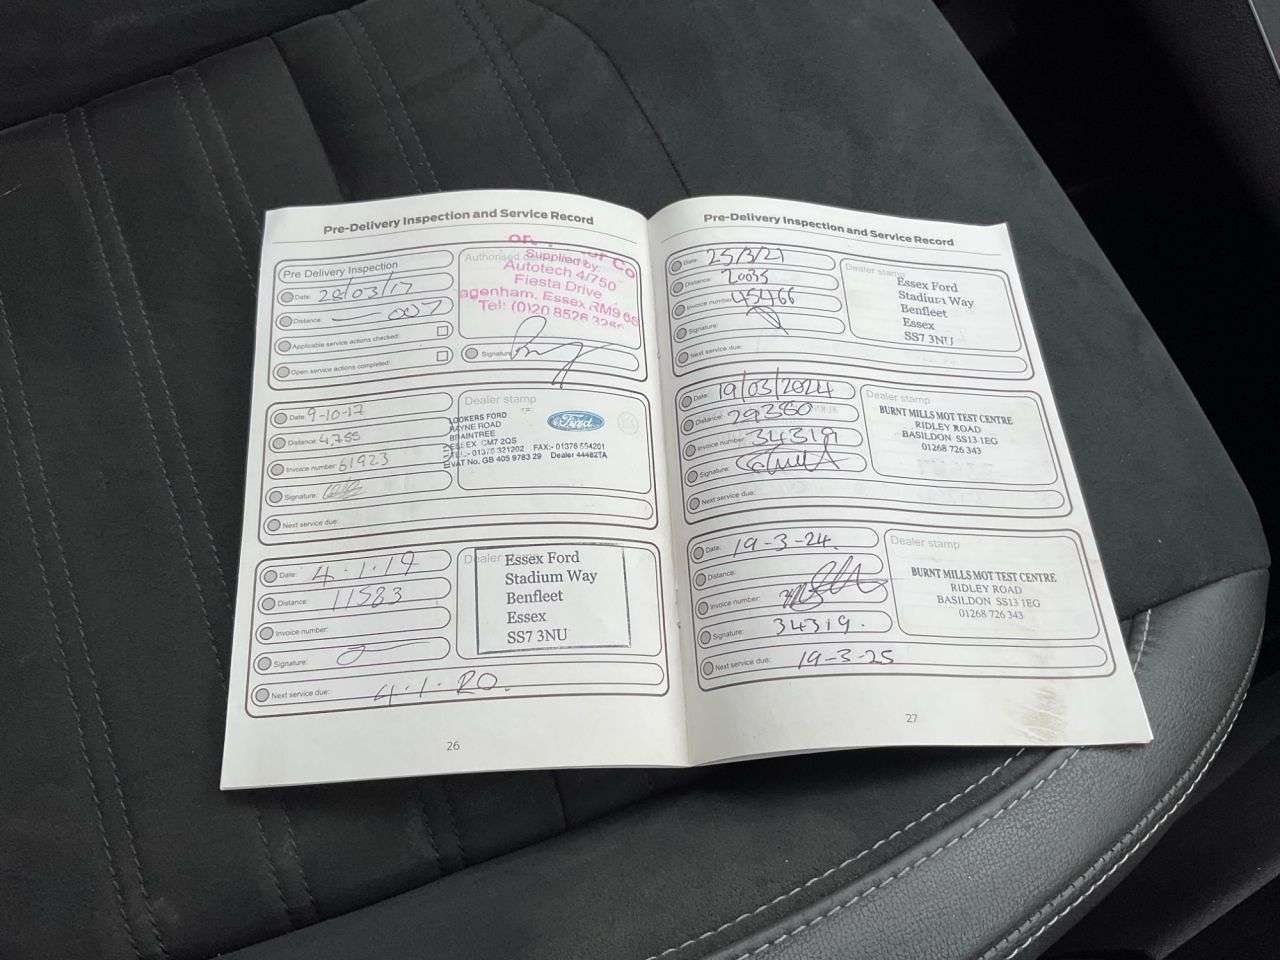 Pre-Delivery Inspection and Service Record
Pre Delivery Inspection
Date: 28/03/17
Distance: 007
Applicable service actions checked:
Open service actions completed:
Authorised
Supplied by:
Autotech 4/750
Fiesta Drive
agenham, Essex RM9 6S
Tel: (0)20 8526
Signature:
Date: 9-10-17
Distance: 4,755
Invoice number: 61923
Signature:
Next service due:
Dealer stamp
LOOKERS FORD
RAYNE ROAD
BRAINTREE
ESSEX CM7 2QS
TEL:- 01376 321202 FAX:- 01376 554201
VAT No. GB 405 9783 29 Dealer 44482TA
Ford
Date: 4.1.19
Distance: 11583
Invoice number:
Signature:
Next service due: 4.1.20.
Dealer stamp
Essex Ford
Stadium Way
Benfleet
Essex
SS7 3NU
26
Pre-Delivery Inspection and Service Record
Date: 25/3/21
Distance: 20035
Invoice number: 45466
Signature:
Next service due:
Dealer stamp
Essex Ford
Stadium Way
Benfleet
Essex
SS7 3NU
Date: 19/03/2024
Distance: 29380
Invoice number: 34319
Signature:
Next service due:
Dealer stamp
BURNT MILLS MOT TEST CENTRE
RIDLEY ROAD
BASILDON SS13 1EG
01268 726 343
Date: 19-3-24.
Distance:
Invoice number:
Signature: 34319.
Next service due: 19-3-25
Dealer stamp
BURNT MILLS MOT TEST CENTRE
RIDLEY ROAD
BASILDON SS13 1EG
01268 726 343
27